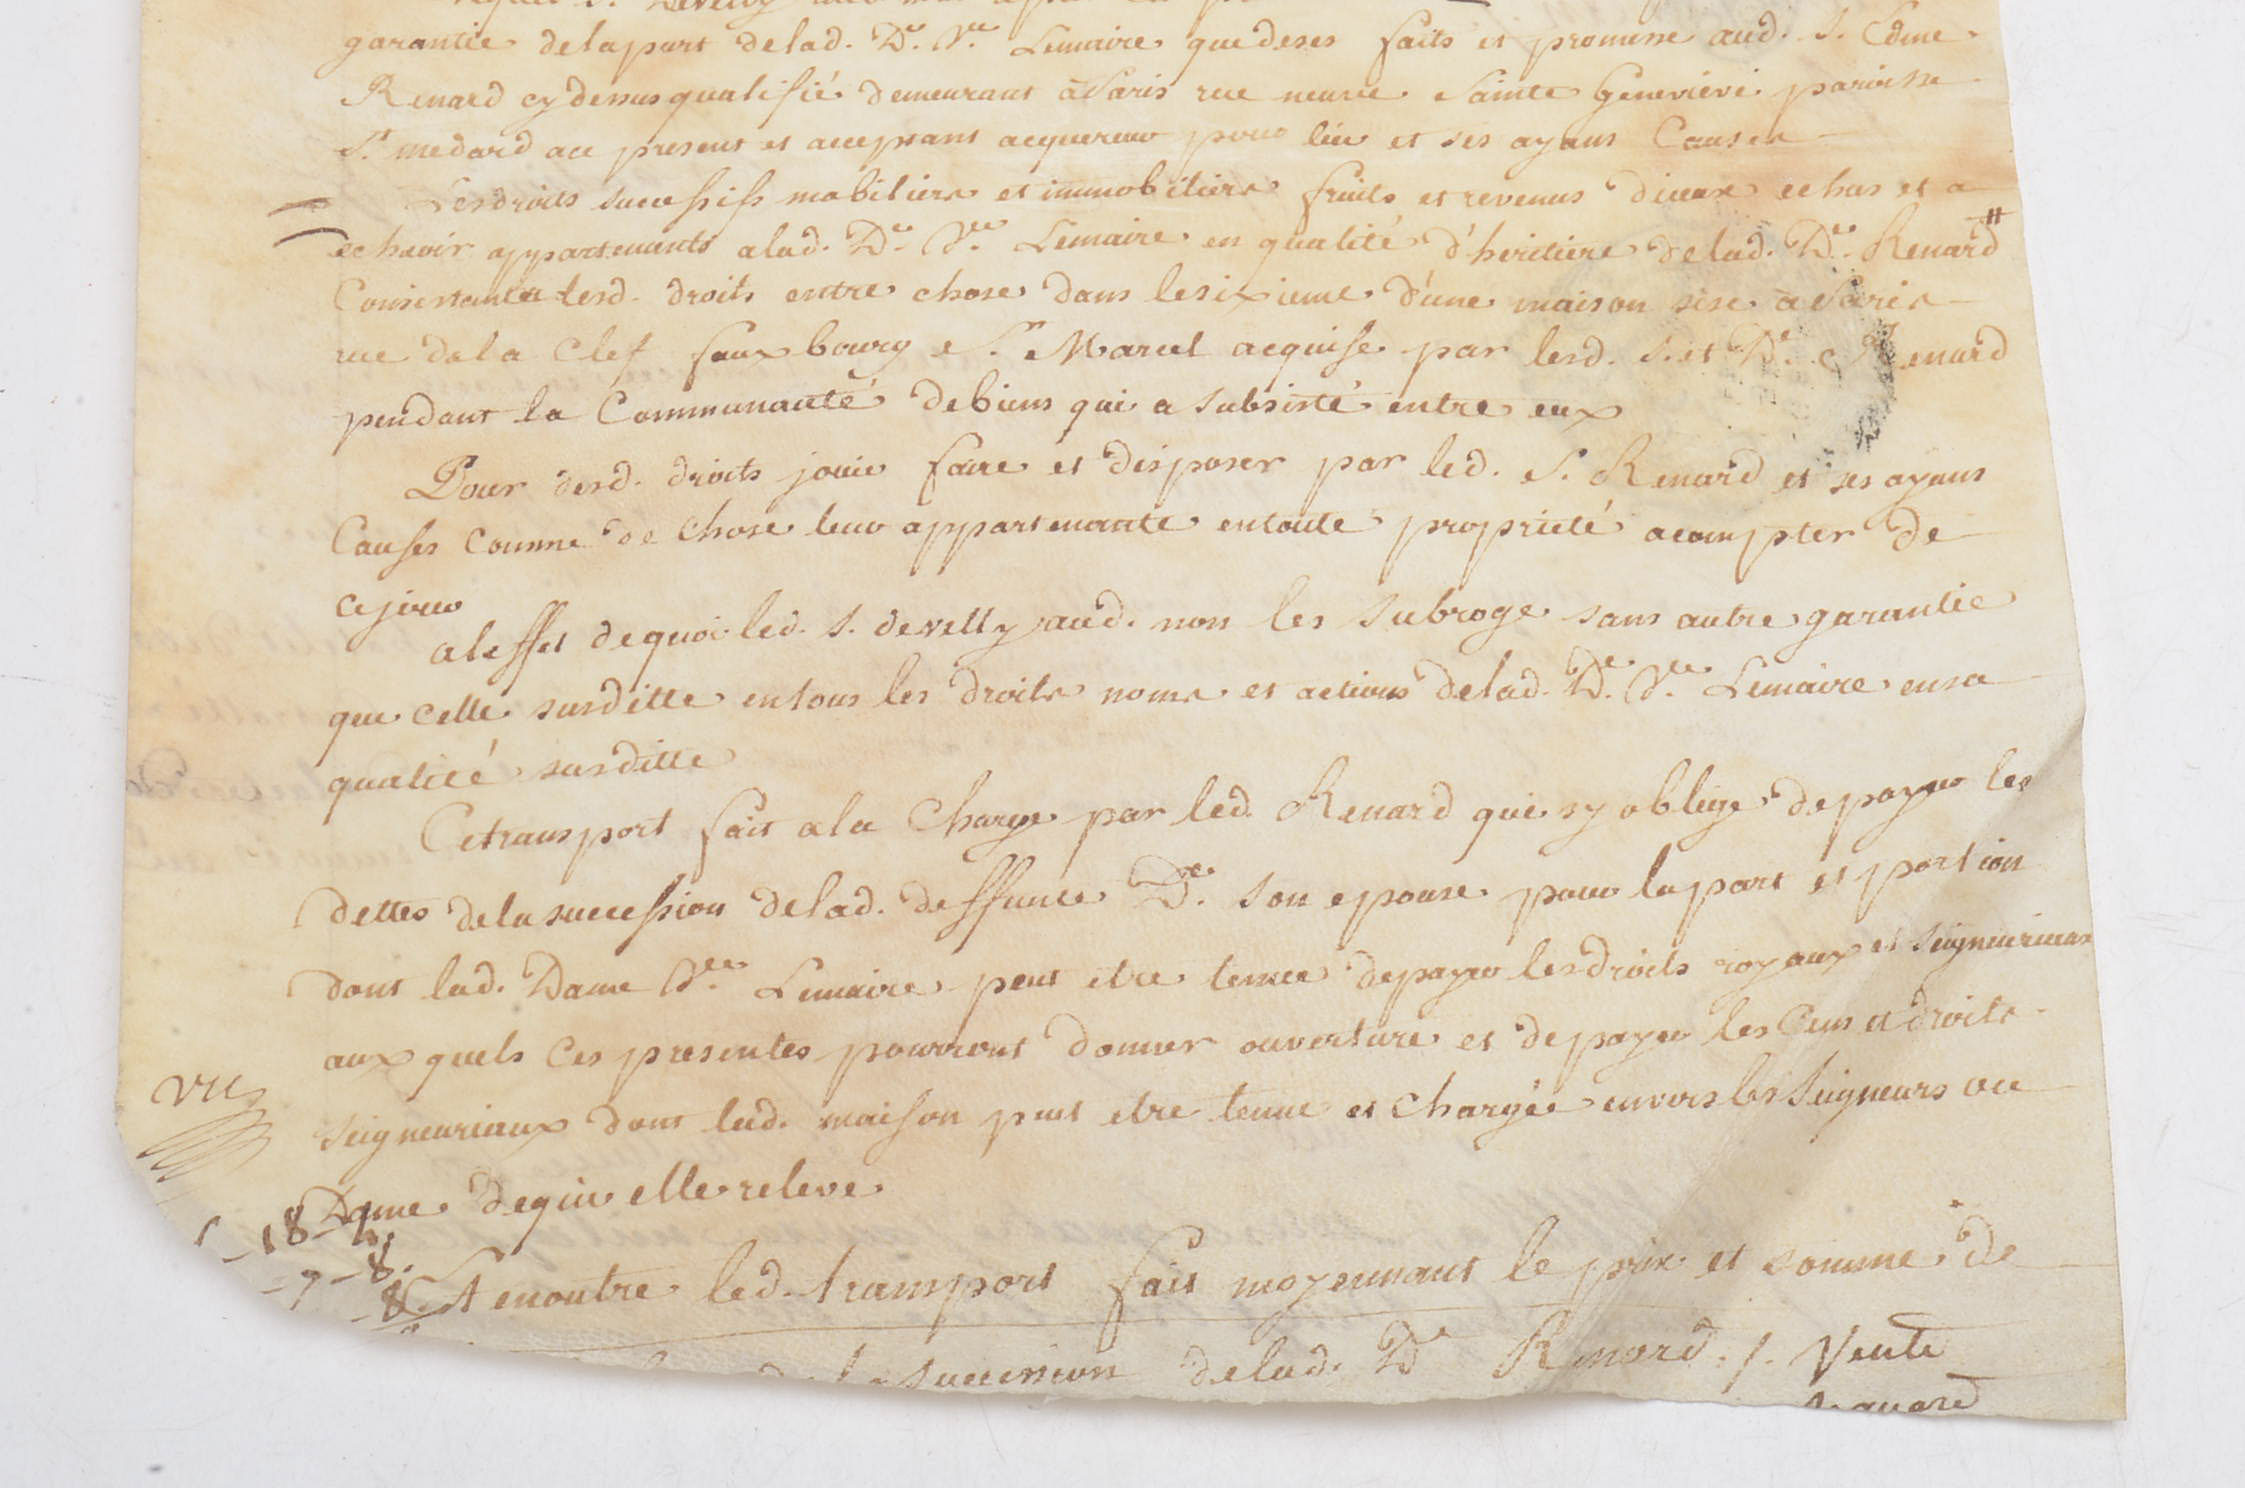 garantie delapart delad. De. Ve. Lemaire que deses faits et promesse aud. S. Edme
Renard cy dessus qualifié demeurant à Paris rue neuve Sainte Genevieve paroisse
St. medard ace present et acceptant acquereur pour lui et ses ayans Causes
Les droits successifs mobiliers et immobiliers fruits et revenus diceux echus et a
echeoir appartenants alad. De. Ve. Lemaire en qualité d'heritiere delad. De. Renard #
Consistants lesd. droits entre chose dans lesixieme d'une maison sise à Paris
rue dela Clef faux bourg St. Marcel acquise par lesd. S. et De. Renard
pendant la Communauté debiens qui a subsisté entre eux
Pour desd. droits jouir faire et disposer par led. S. Renard et ses ayans
Causes comme de chose leur appartenante entoute proprieté acompter de
cejour
aleffet dequoi led. S. develly aud. nom les subroge sans autre garantie
que celle susditte entous les droits noms et actions delad. De. Ve. Lemaire ensa
qualité susditte
Cetransport fait ala Charge par led. Renard qui sy oblige depayer les
dettes dela succession delad. deffunte De. son epouse pour lapart et portion
dont lad. Dame Ve. Lemaire peut etre tenue depayer lesdroits royaux et seigneuriaux
aux quels ces presentes pourront donner ouverture et depayer les Cens et droits
Vu
seigneuriaux dont lad. maison peut etre tenue et chargée envers les Seigneurs ou
Dame dequi elle releve
- 18 - 4
- 7 - 8.
- 8.
Et enoutre led. transport fait moyennant le prix et somme de
dela succession delad. De Renard ./. Vente
Renard